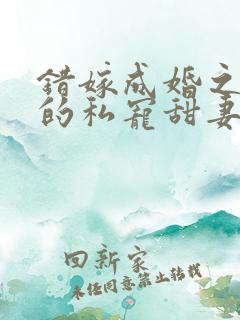 错嫁成婚之
的私宠甜妻
回新家
未经同意禁止转载